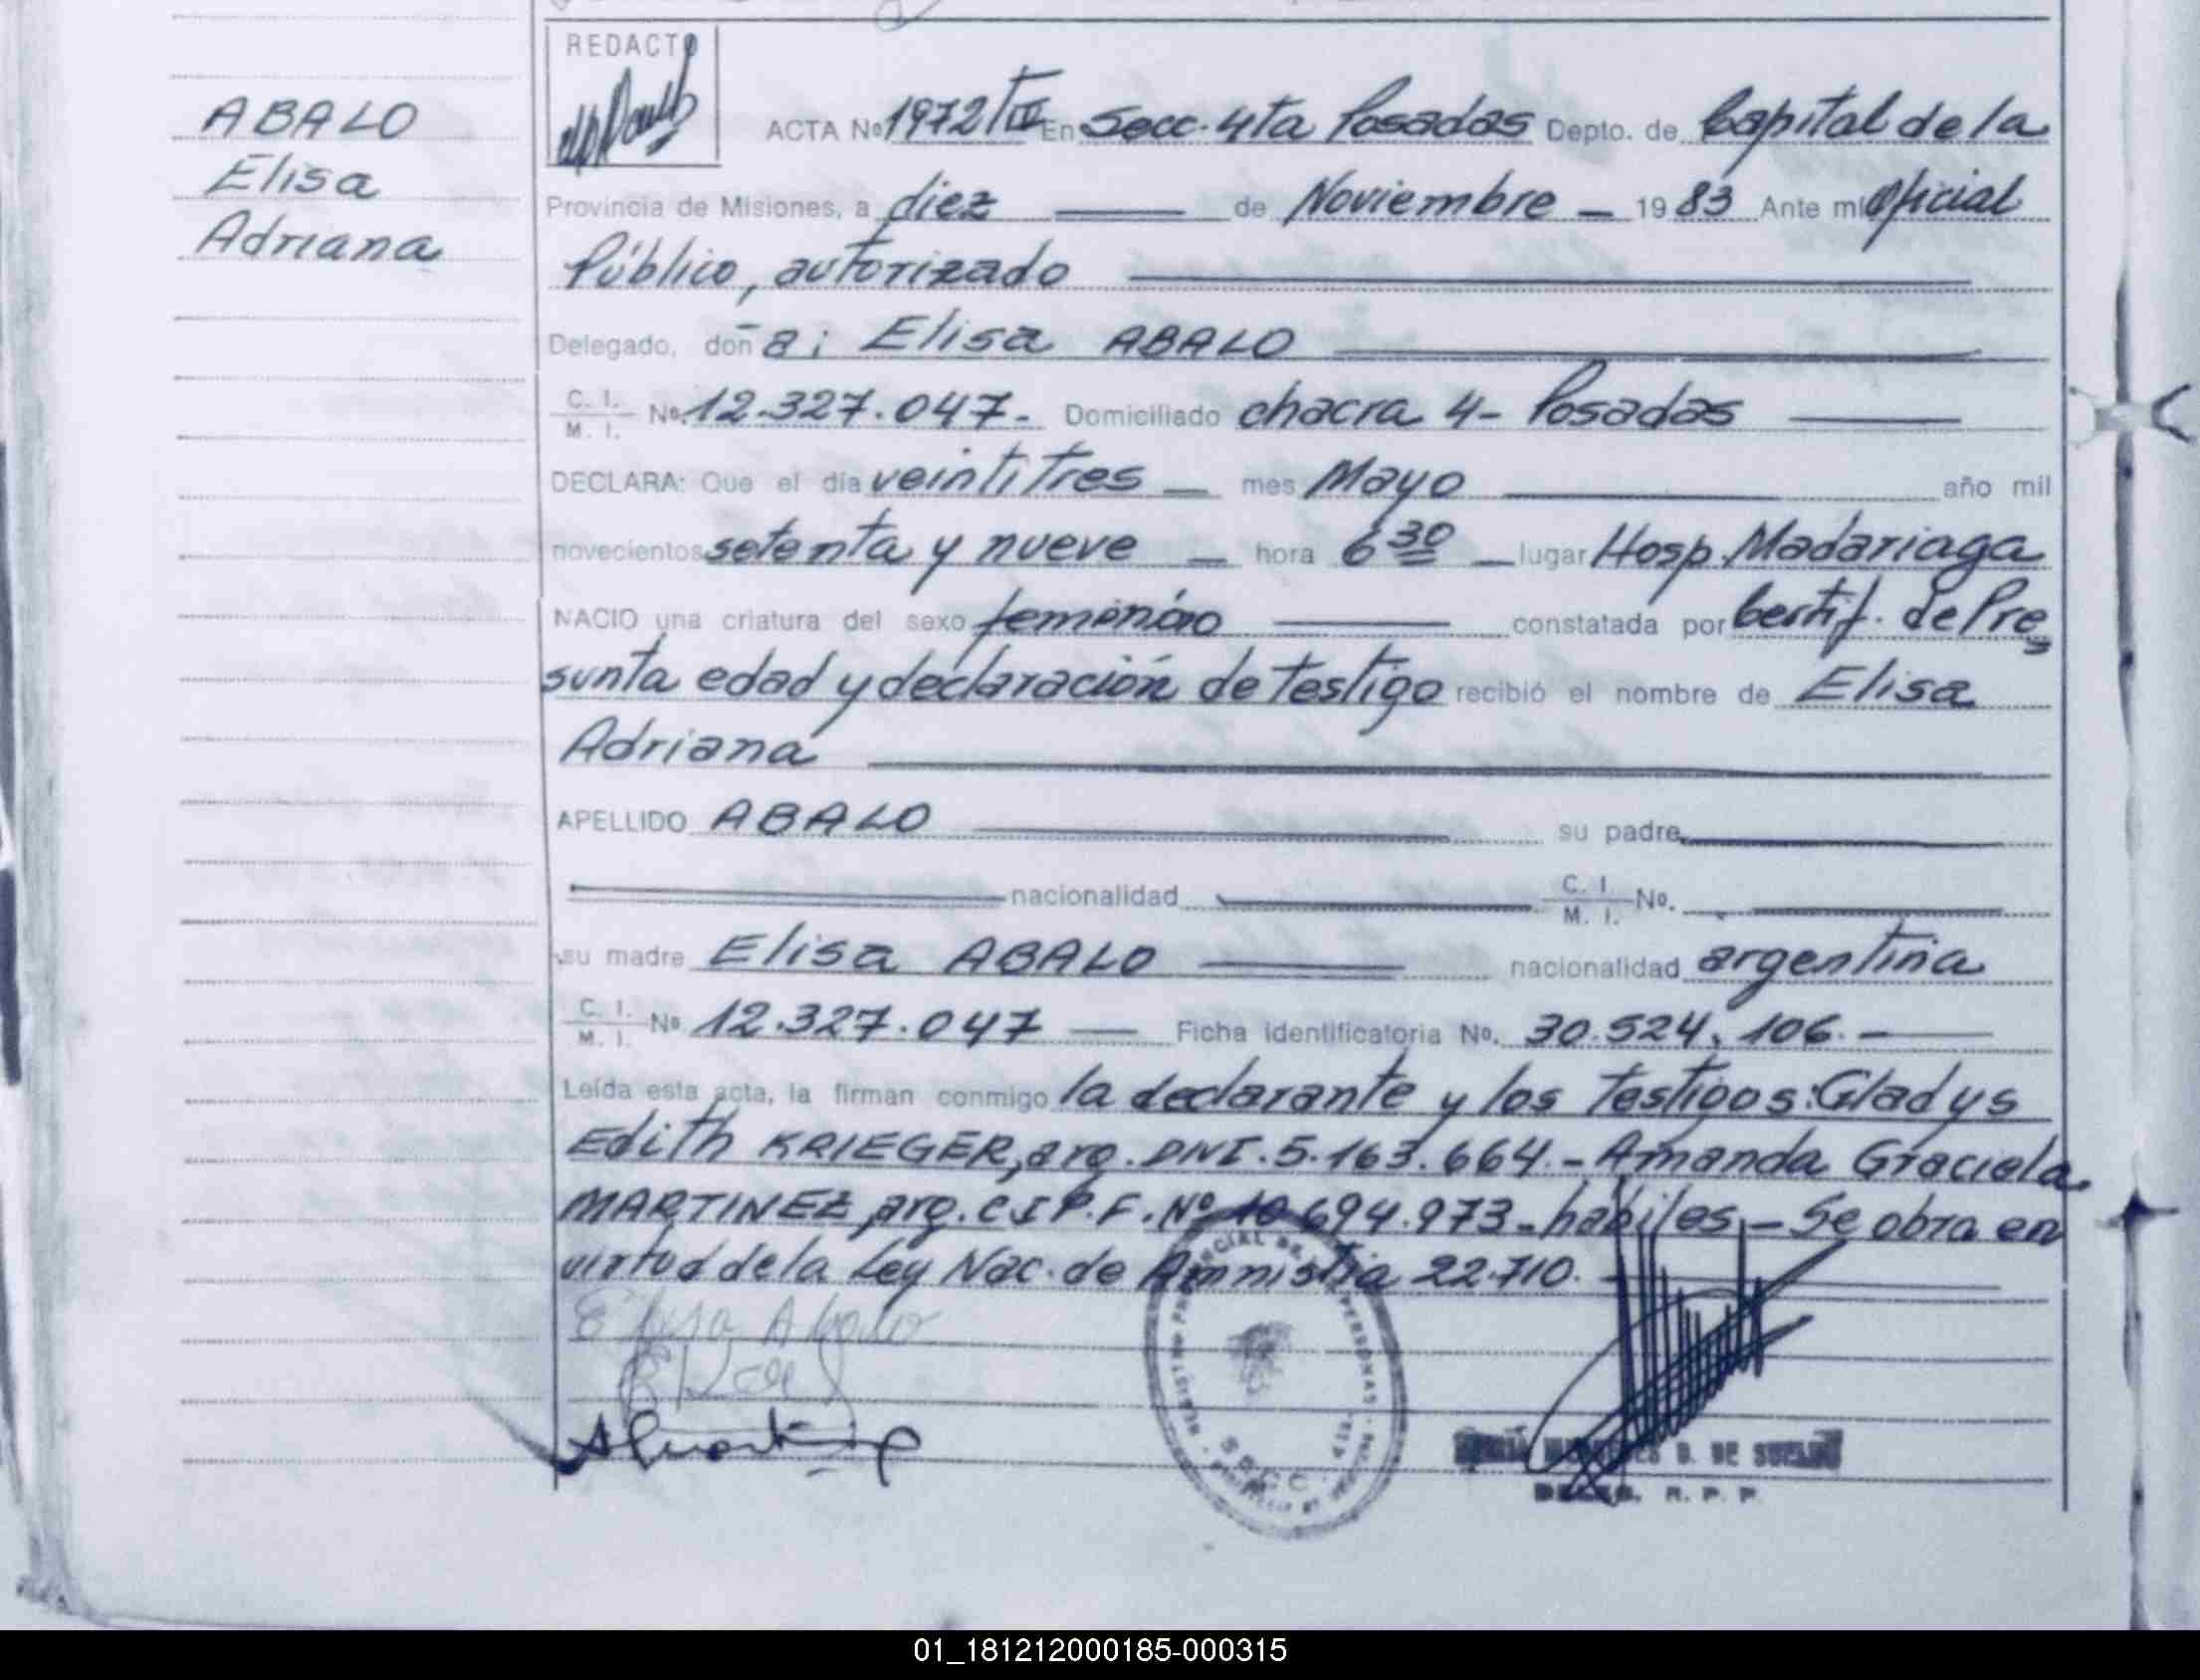 REDACTO
ABALO
Elisa
Adriana
ACTA Nº 1972/III En Secc. 4ta Posadas Depto. de Capital de la
Provincia de Misiones, a diez de Noviembre 1983 Ante mi Oficial
Público, autorizado
Delegado, doña: Elisa ABALO
C. I. M. I. Nº. 12.327.047.- Domiciliado chacra 4- Posadas
DECLARA: Que el día veintitres mes Mayo año mil
novecientos setenta y nueve hora 6 30 lugar Hosp. Madariaga
NACIO una criatura del sexo femenino constatada por Certif. de Pre
sunta edad y declaración de testigo recibió el nombre de Elisa
Adriana
APELLIDO ABALO su padre
nacionalidad C. I. M. I. No.
su madre Elisa ABALO nacionalidad argentina
C. I. M. I. Nº 12.327.047 Ficha identificatoria No. 30.524.106.-
Leída esta acta, la firman conmigo la declarante y los testigos: Gladys
Edith KRIEGER, arg. DNI. 5.163.664.- Amanda Graciela
MARTINEZ, arg. C.I.P.F. Nº 10.694.973- habiles.- Se obra en
virtud de la Ley Nac. de Amnistia 22.710.
Elisa Abalo
DE SUELDO
R. P. P.
01_181212000185-000315